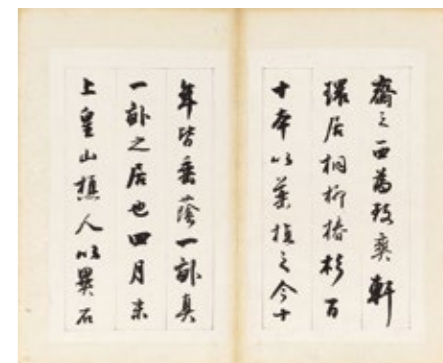 齋之西為致爽軒
環居桐柳椿杉百
十本以藥植之今十
年皆垂蔭一畝真
一畝之居也四月末
上皇山樵人以異石